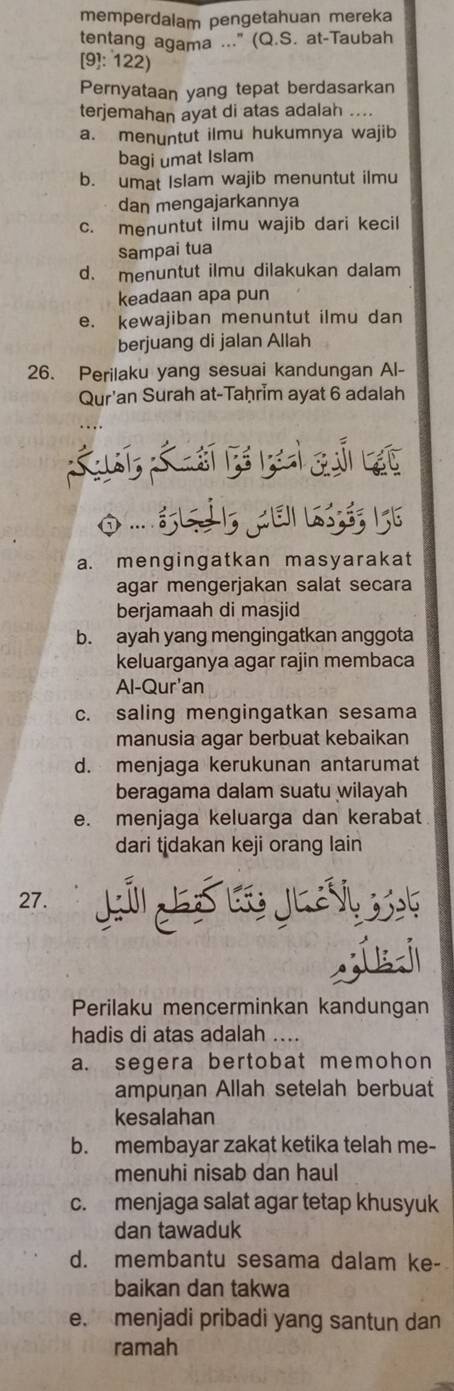 memperdalam pengetahuan mereka
tentang agama ..." (Q.S. at-Taubah
[9]: 122)
Pernyataan yang tepat berdasarkan
terjemahan ayat di atas adalah ....
a. menuntut ilmu hukumnya wajib
bagi umat Islam
b. umat Islam wajib menuntut ilmu
dan mengajarkannya
c. menuntut ilmu wajib dari kecil
sampai tua
d. menuntut ilmu dilakukan dalam
keadaan apa pun
e. kewajiban menuntut ilmu dan
berjuang di jalan Allah
26. Perilaku yang sesuai kandungan Al-
Qur'an Surah at-Taḥrīm ayat 6 adalah
....
يٰٓاَيُّهَا الَّذِيْنَ اٰمَنُوْا قُوْٓا اَنْفُسَكُمْ وَاَهْلِيْكُمْ
نَارًا وَّقُوْدُهَا النَّاسُ وَالْحِجَارَةُ ... ٦
a. mengingatkan masyarakat
agar mengerjakan salat secara
berjamaah di masjid
b. ayah yang mengingatkan anggota
keluarganya agar rajin membaca
Al-Qur'an
c. saling mengingatkan sesama
manusia agar berbuat kebaikan
d. menjaga kerukunan antarumat
beragama dalam suatu wilayah
e. menjaga keluarga dan kerabat
dari tidakan keji orang lain
27. بَادِرُوْ بِالْأَعْمَالِ فِتَنًا كَقِطَعِ اللَّيْلِ
الْمُظْلِمِ
Perilaku mencerminkan kandungan
hadis di atas adalah ....
a. segera bertobat memohon
ampunan Allah setelah berbuat
kesalahan
b. membayar zakat ketika telah me-
menuhi nisab dan haul
c. menjaga salat agar tetap khusyuk
dan tawaduk
d. membantu sesama dalam ke-
baikan dan takwa
e. menjadi pribadi yang santun dan
ramah